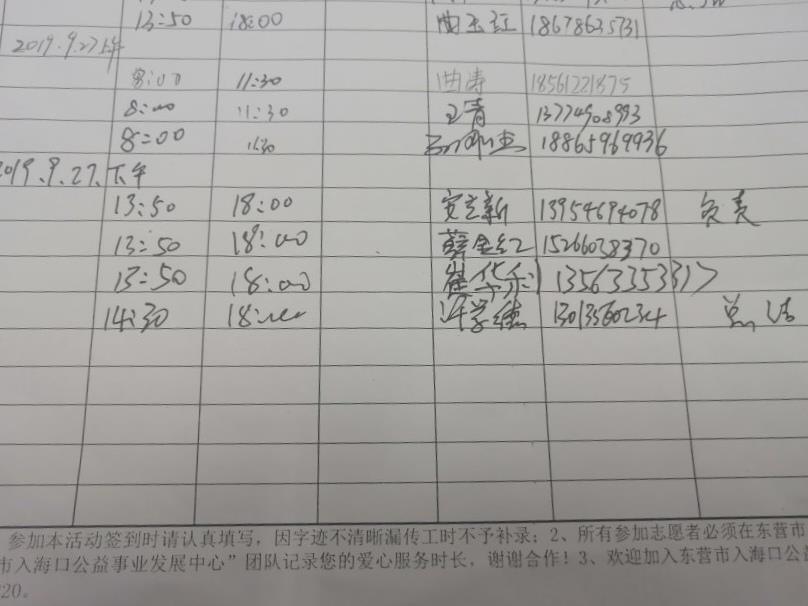 13:50 18:00 曲玉红 18678625731
2019.9.27上午
8:00 11:30 曲涛 18561221875
8:00 11:30 王青 13774908993
8:00 11:30 18865969936
2019.9.27.下午
13:50 18:00 安立新 13954694078 负责
13:50 18:00 薛金红 15266038370
13:50 18:00 崔 13563353317
14:30 18:00 许学德 13013560234
参加本活动签到时请认真填写,因字迹不清晰漏传工时不予补录;2、所有参加志愿者必须在东营市
市入海口公益事业发展中心”团队记录您的爱心服务时长,谢谢合作!3、欢迎加入东营市入海口公益
20。